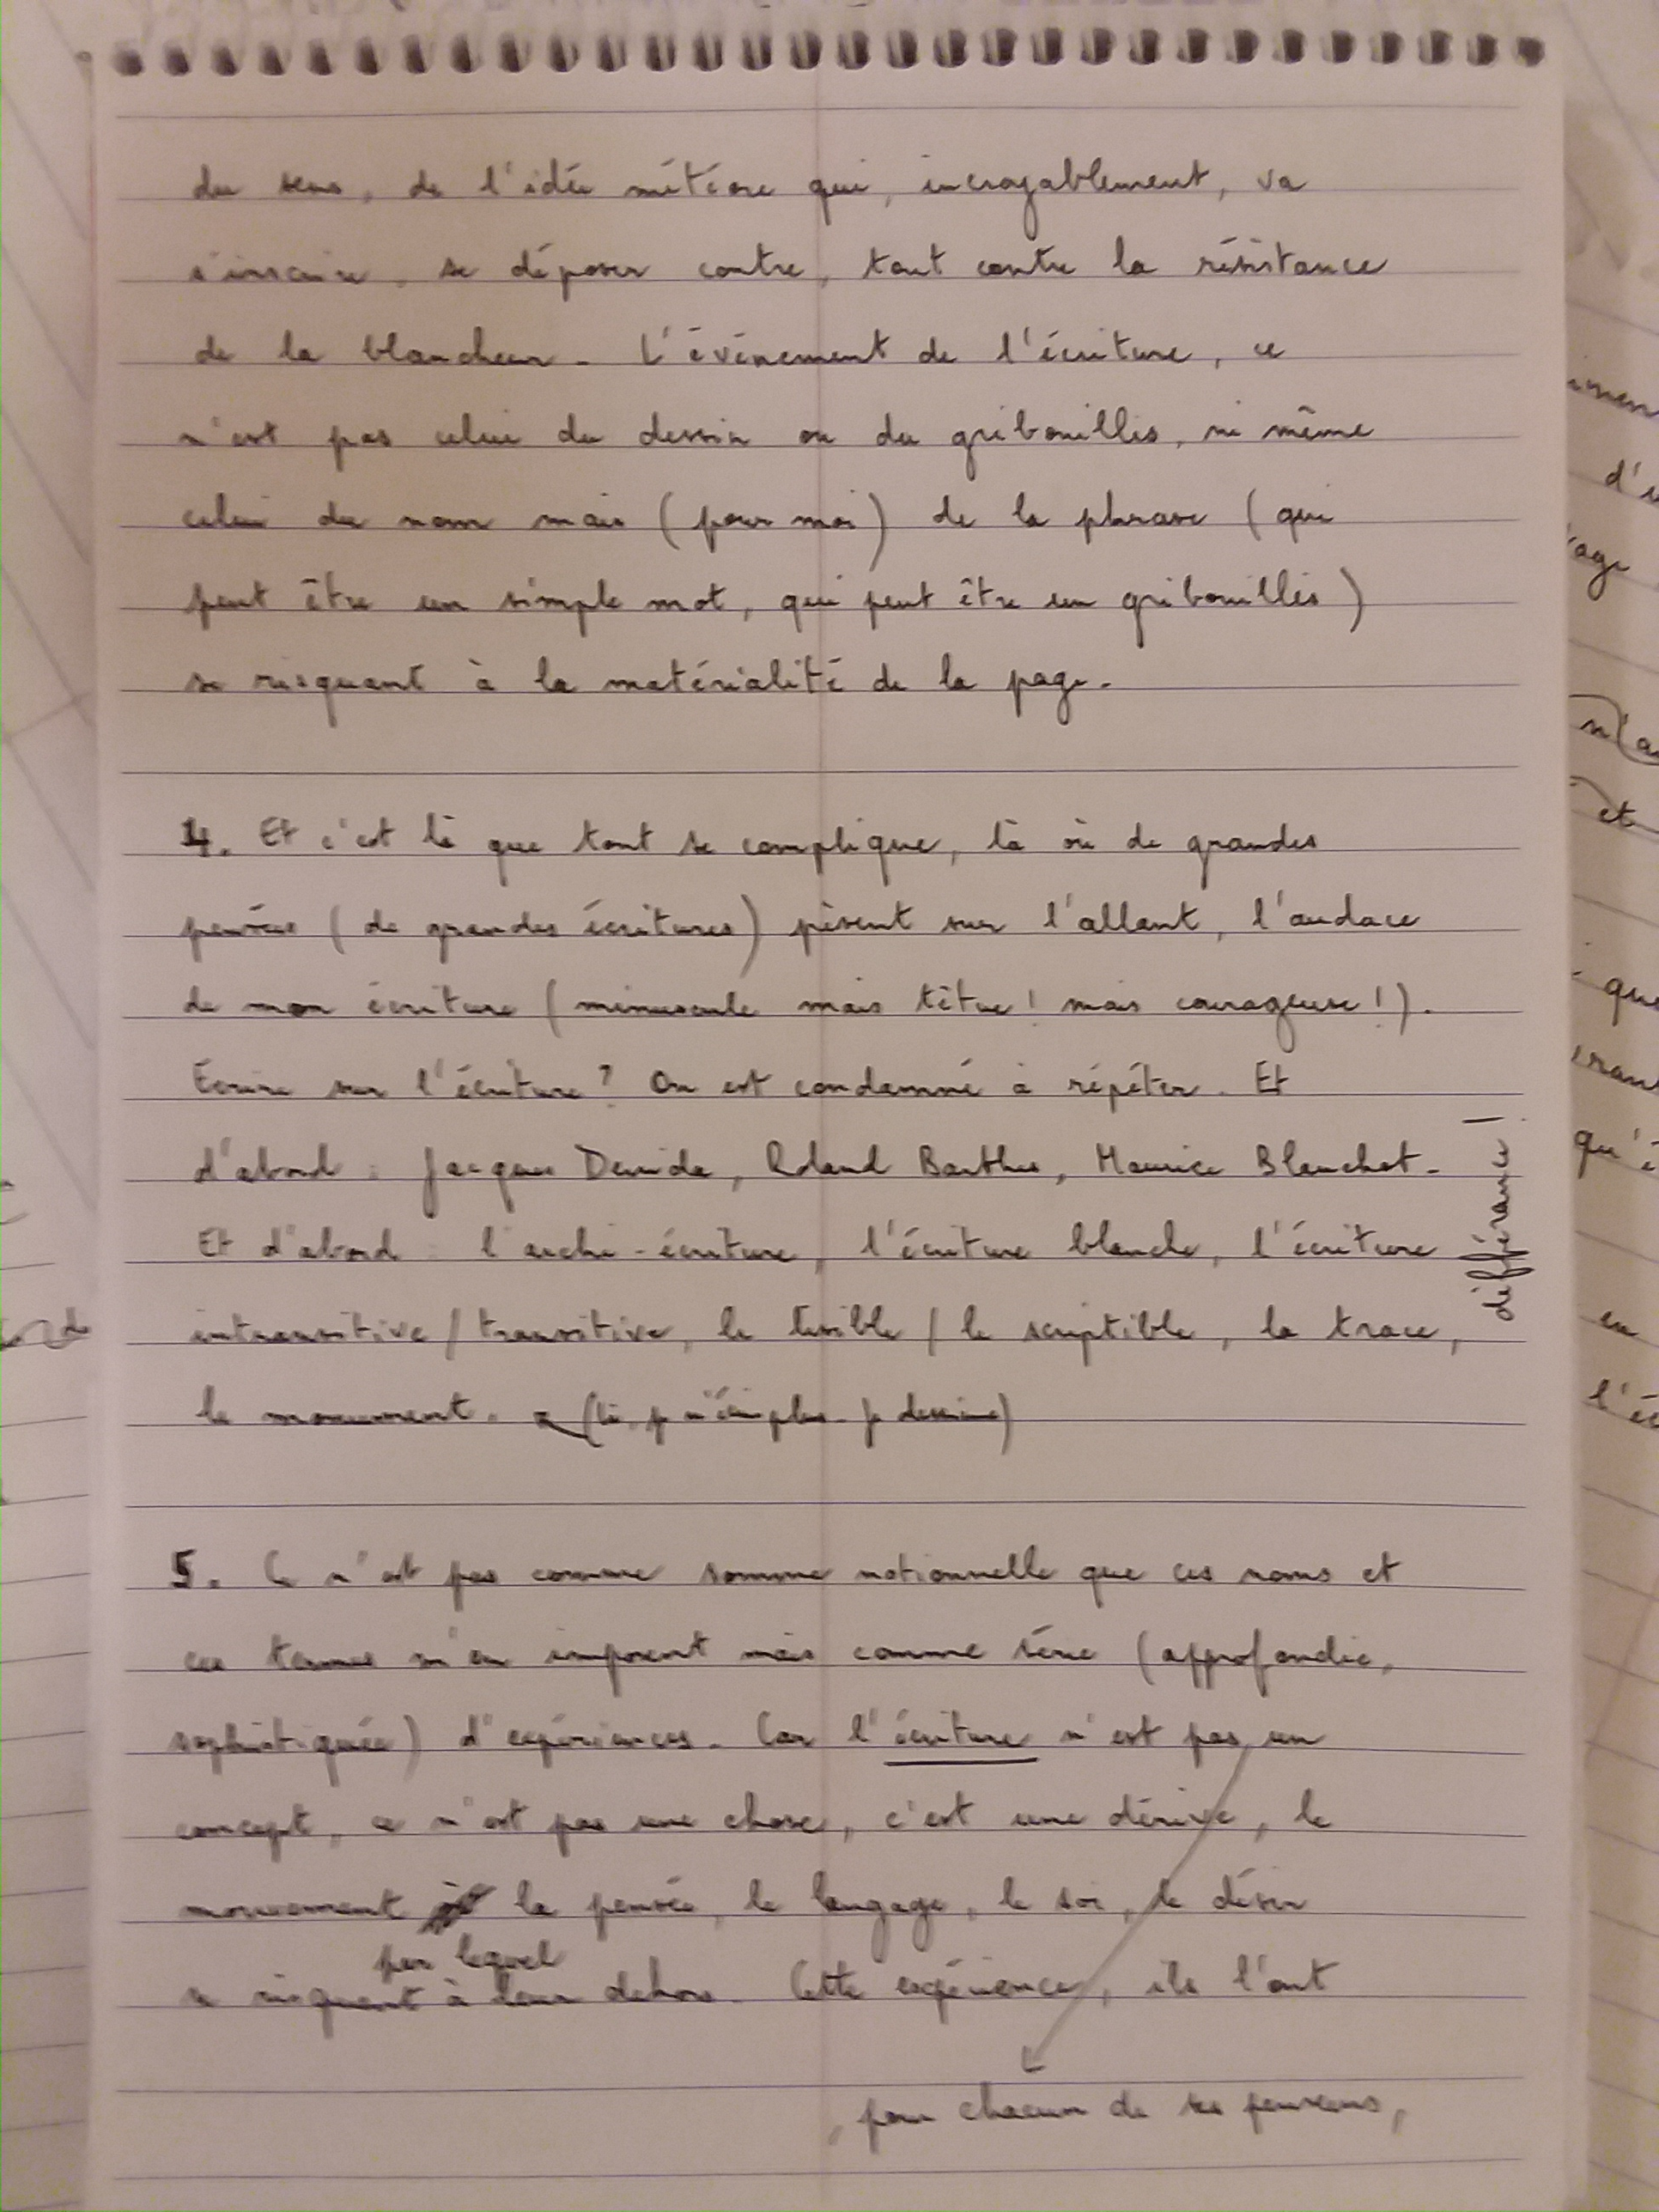 du sens, de l'idée météore qui, incroyablement, va
s'inscrire, se déposer contre, tout contre la résistance
de la blancheur. L'événement de l'écriture, ce
n'est pas celui du dessin ou du gribouillis, ni même
celui du nom mais (pour moi) de la phrase (qui
peut être un simple mot, qui peut être un gribouillis)
se risquant à la matérialité de la page.
4. Et c'est là que tout se complique, là où de grandes
pensées (de grandes écritures) pèsent sur l'allant, l'audace
de mon écriture (minuscule mais têtue ! mais courageuse !).
Ecrire sur l'écriture ? On est condamné à répéter. Et
d'abord : Jacques Derrida, Roland Barthes, Maurice Blanchot.
Et d'abord : l'archi-écriture, l'écriture blanche, l'écriture
différance !
intransitive / transitive, le lisible / le scriptible, la trace,
le mouvement. (là, je n'écris plus. Je dessine)
5. Ce n'est pas comme somme notionnelle que ces noms et
ces termes m'en imposent mais comme série (approfondie,
sophistiquée) d'expériences. Car l'écriture n'est pas un
concept, ce n'est pas une chose, c'est une dérive, le
mouvement la pensée, le langage, le soi, le désir
par lequel
se risquent à leur dehors. Cette expérience, ils l'ont
, pour chacun de ses penseurs,
imen
d'u
age
n'a
et
que
qu'
en
l'éc
de